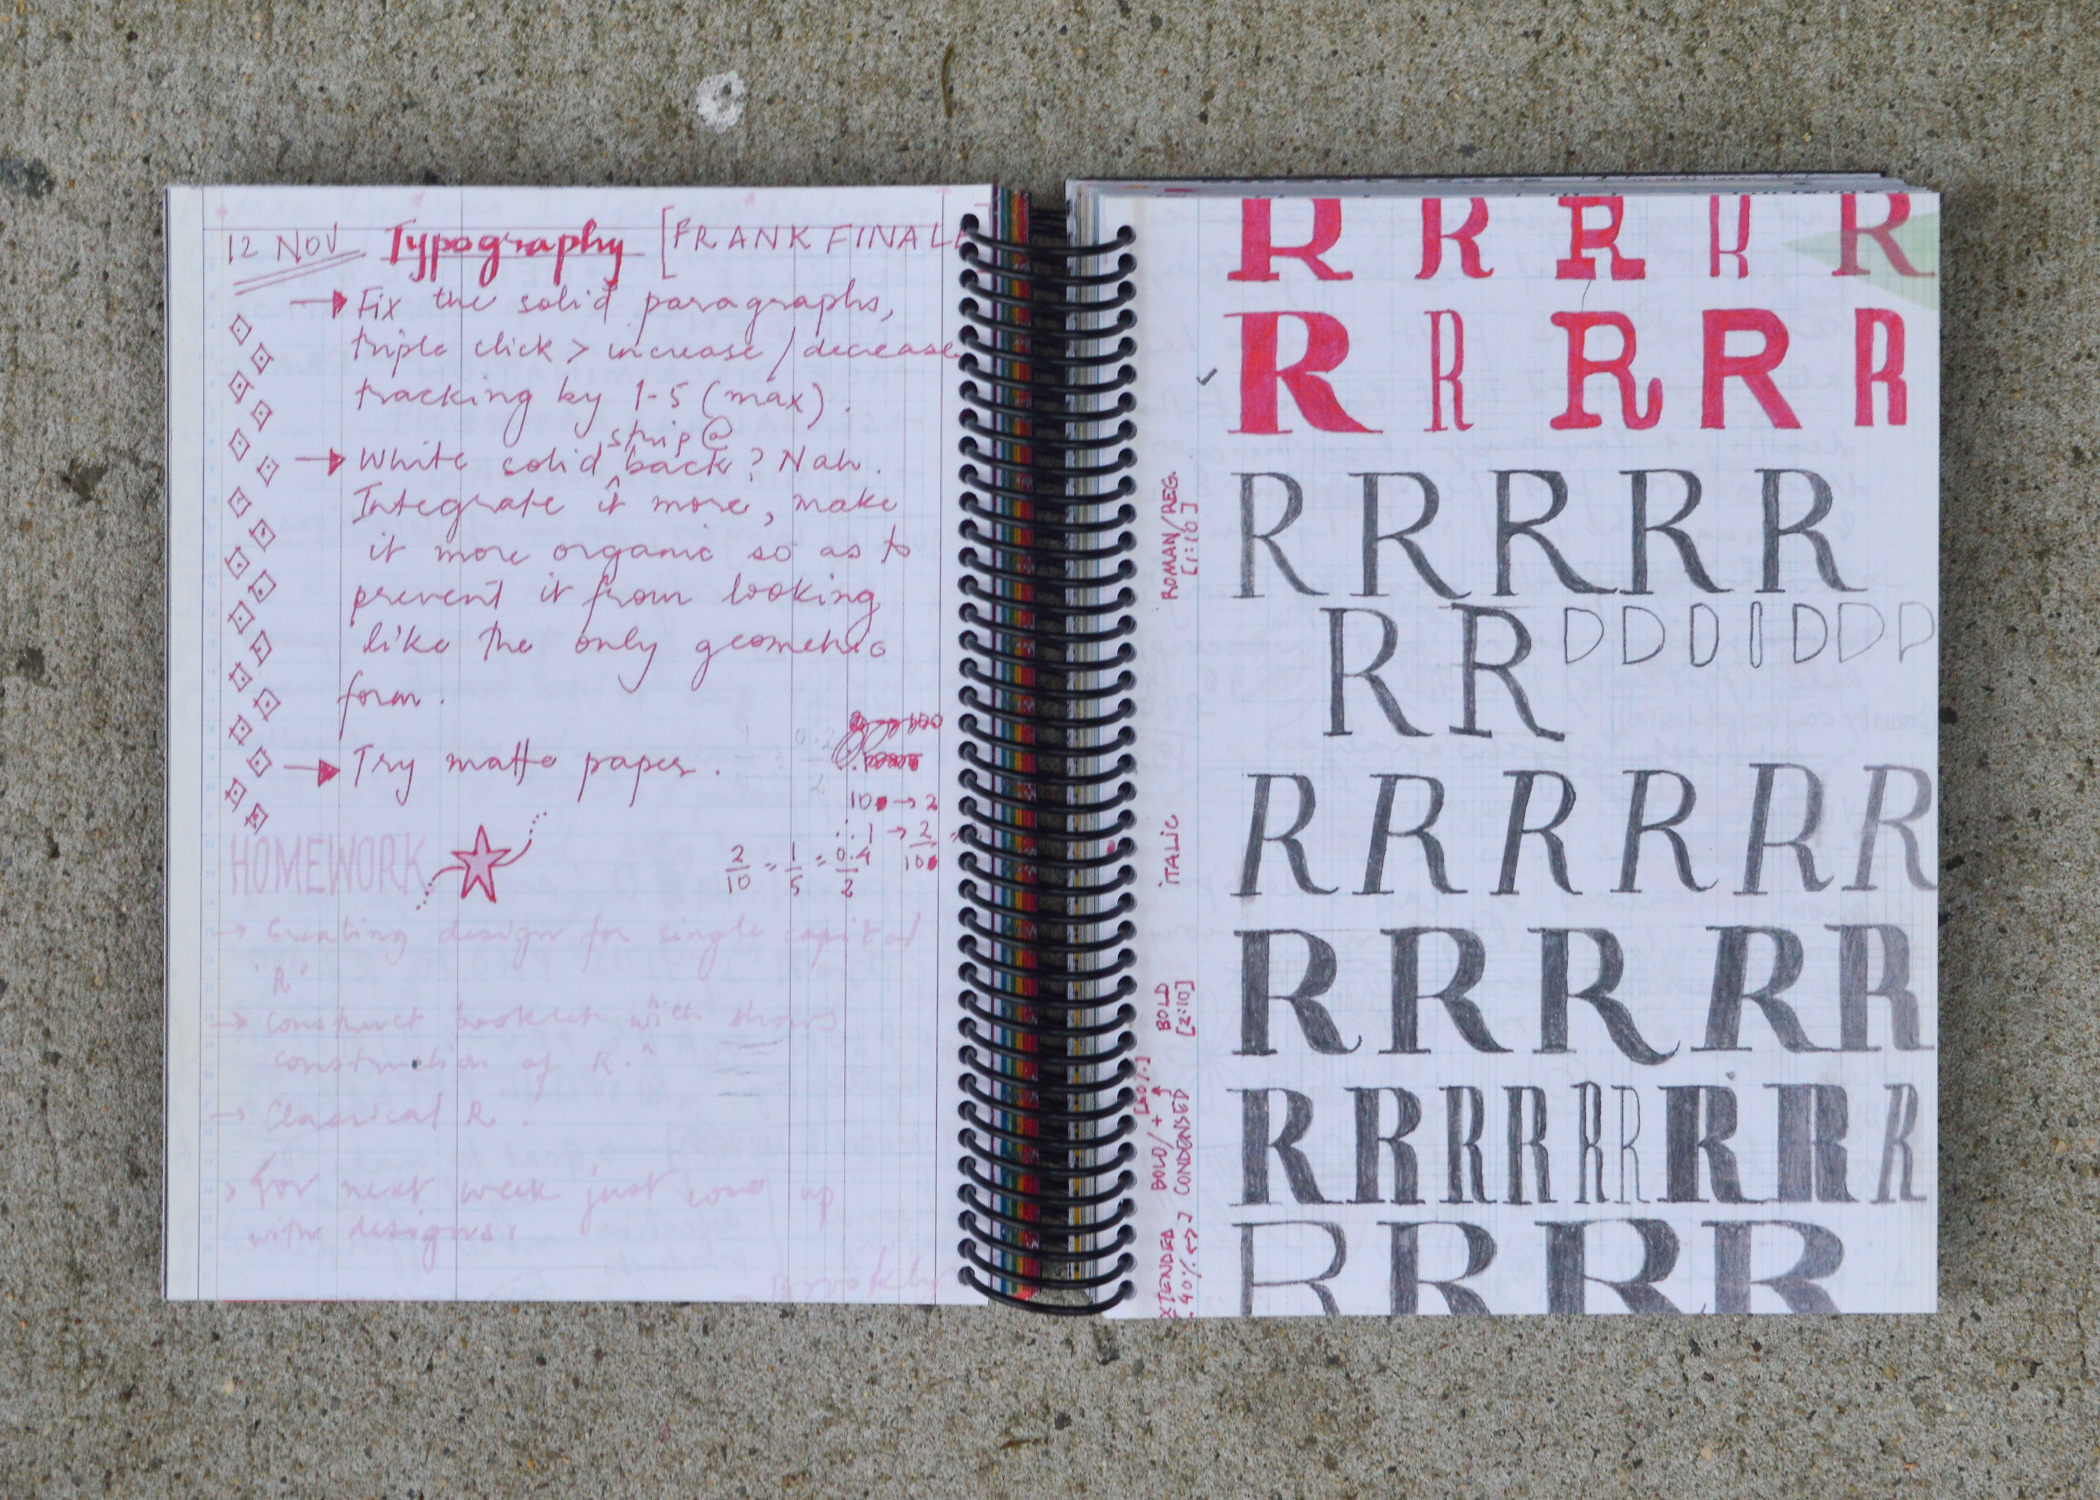 12 NOV Typography [FRANK FINAL
→ Fix the solid paragraphs,
triple click > increase / decrease
tracking by 1-5 (max).
strip @
→ White solid ^ back? Nah.
Integrate it more, make
it more organic so as to
prevent it from looking
like the only geometric
form.
→ Try matte paper.
10 → 2
∴ 1 → 2/10
2/10 = 1/5 = 0.4/2
HOMEWORK
→ Creating design for single capital
'R'
→ Construct booklet which shows
construction of R.
→ Classical R.
> For next week just come up
with designs.
Brooklyn
R R R R R
R R R R R
ROMAN/REG.
[1:10]
R R R R R
R R D D D I D D D
ITALIC
R R R R R R
BOLD
[2:10]
R R R R R
BOLD/+
CONDENSED
R R R R R R R R R
XTENDED
40% ↔]
R R R R